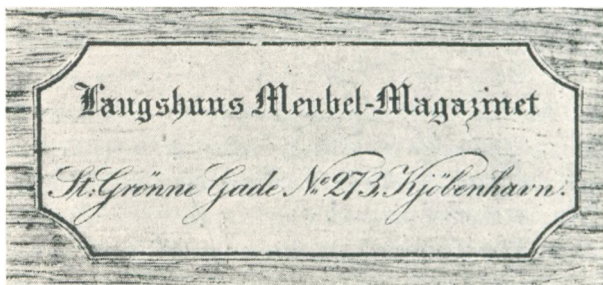 Laugshuus Meubel-Magazinet
St. Grönne Gade No. 273, Kjöbenhavn.